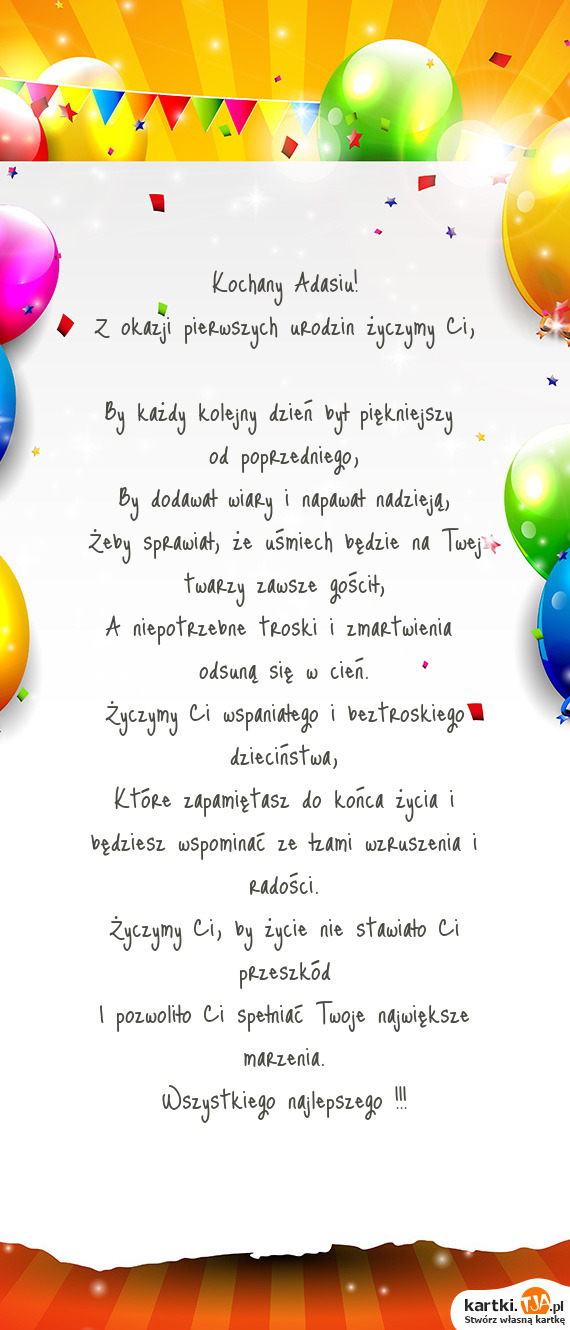 Kochany Adasiu!
Z okazji pierwszych urodzin życzymy Ci,
By każdy kolejny dzień był piękniejszy
od poprzedniego,
By dodawał wiary i napawał nadzieją,
Żeby sprawiał, że uśmiech będzie na Twej
twarzy zawsze gościł,
A niepotrzebne troski i zmartwienia
odsuną się w cień.
Życzymy Ci wspaniałego i beztroskiego
dzieciństwa,
Które zapamiętasz do końca życia i
będziesz wspominać ze łzami wzruszenia i
radości.
Życzymy Ci, by życie nie stawiało Ci
przeszkód
I pozwoliło Ci spełniać Twoje największe
marzenia.
Wszystkiego najlepszego !!!
kartki.TJA.pl
Stwórz własną kartkę